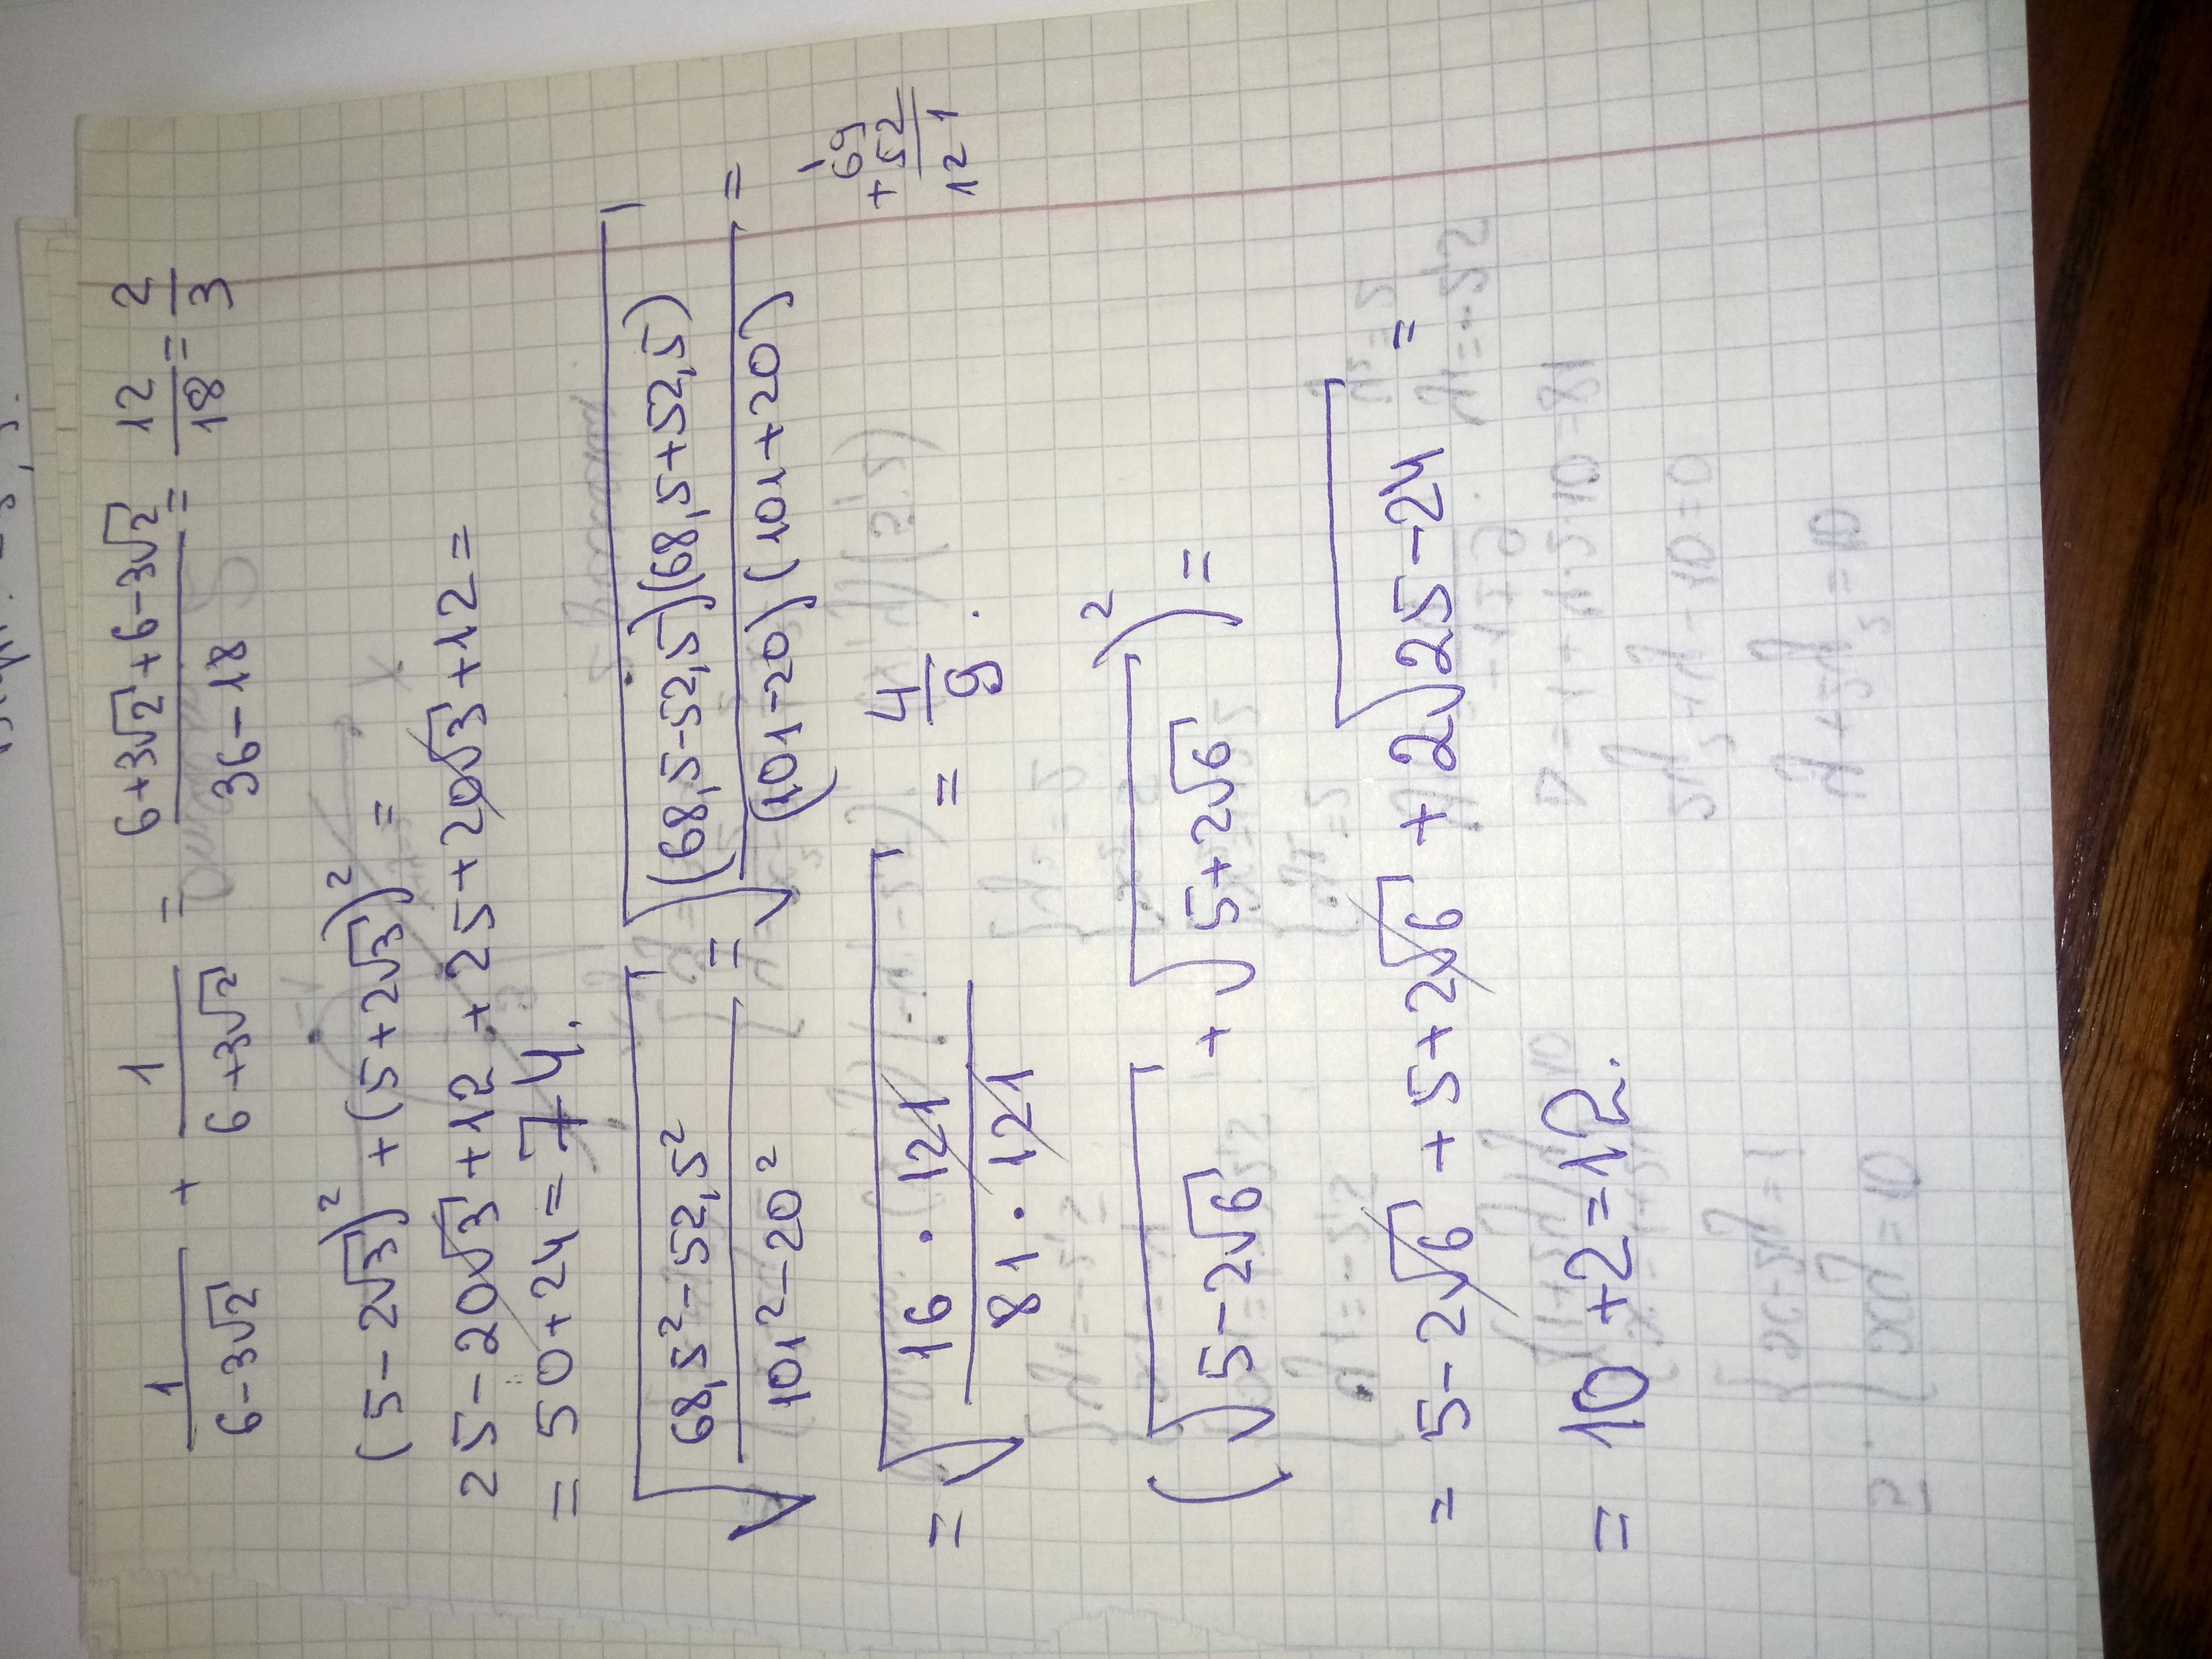 1/(6-3√2) + 1/(6+3√2) = (6+3√2+6-3√2)/(36-18) = 12/18 = 2/3
(5-2√3)² + (5+2√3)² =
25-20√3+12 + 25+20√3+12 =
= 50+24 = 74.
√((68,5²-52,5²)/(101²-20²)) = √(((68,5-52,5)(68,5+52,5))/((101-20)(101+20))) =
= √((16·121)/(81·121)) = 4/9.
69
+52
121
(√(5-2√6) + √(5+2√6))² =
= 5-2√6 + 5+2√6 + 2√(25-24) =
= 10+2=12.